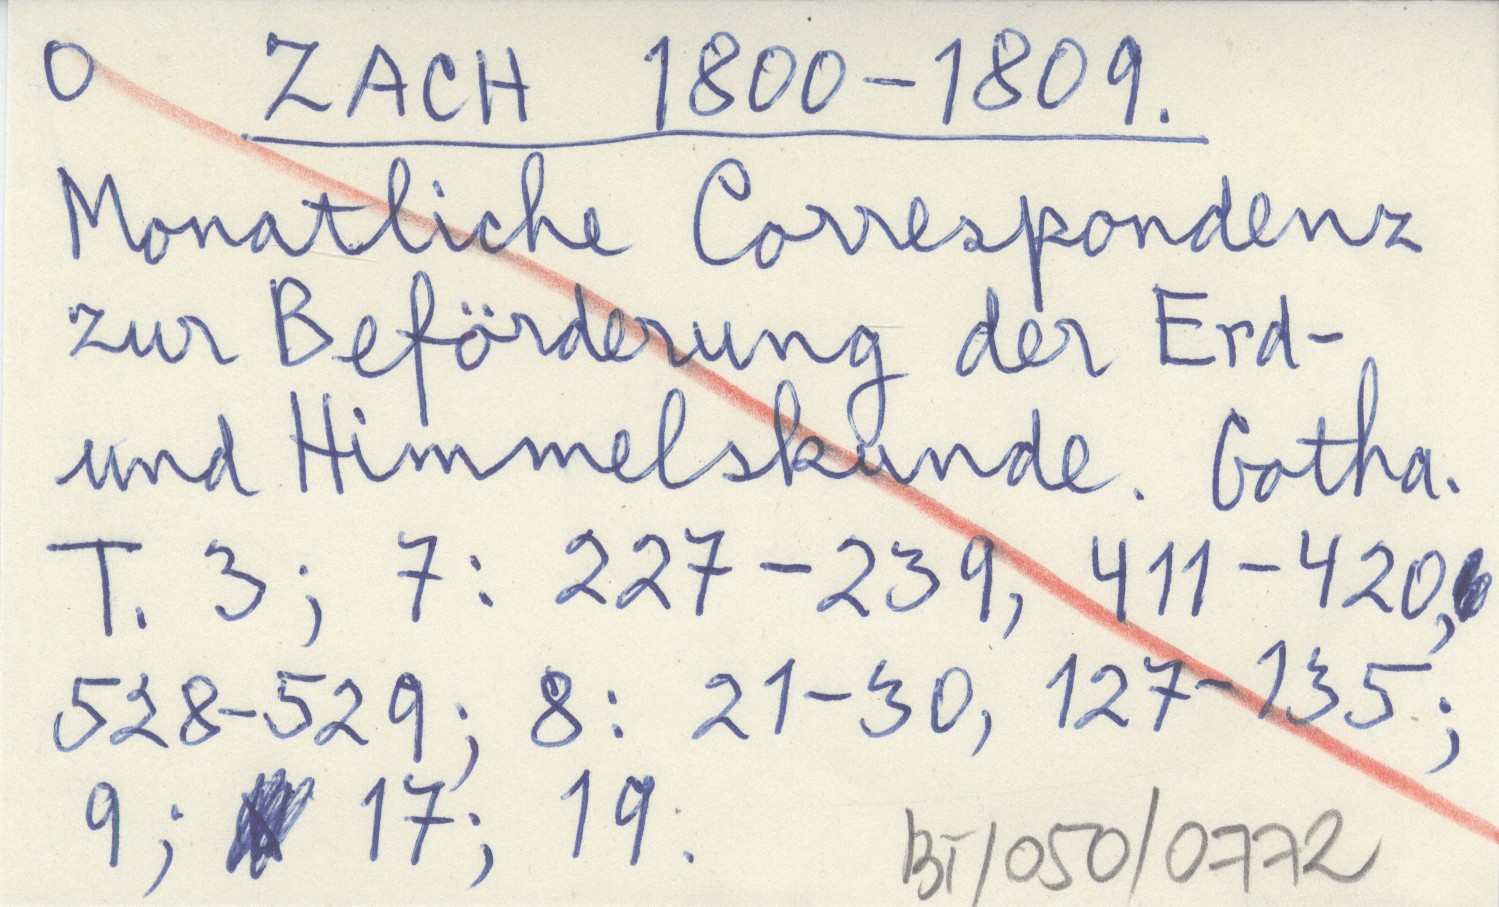 O ZACH 1800-1809.
Monatliche Correspondenz
zur Beförderung der Erd-
und Himmelskunde. Gotha.
T. 3; 7: 227-239, 411-420,
528-529; 8: 21-30, 127-135;
9; 17; 19.
BI/050/0772